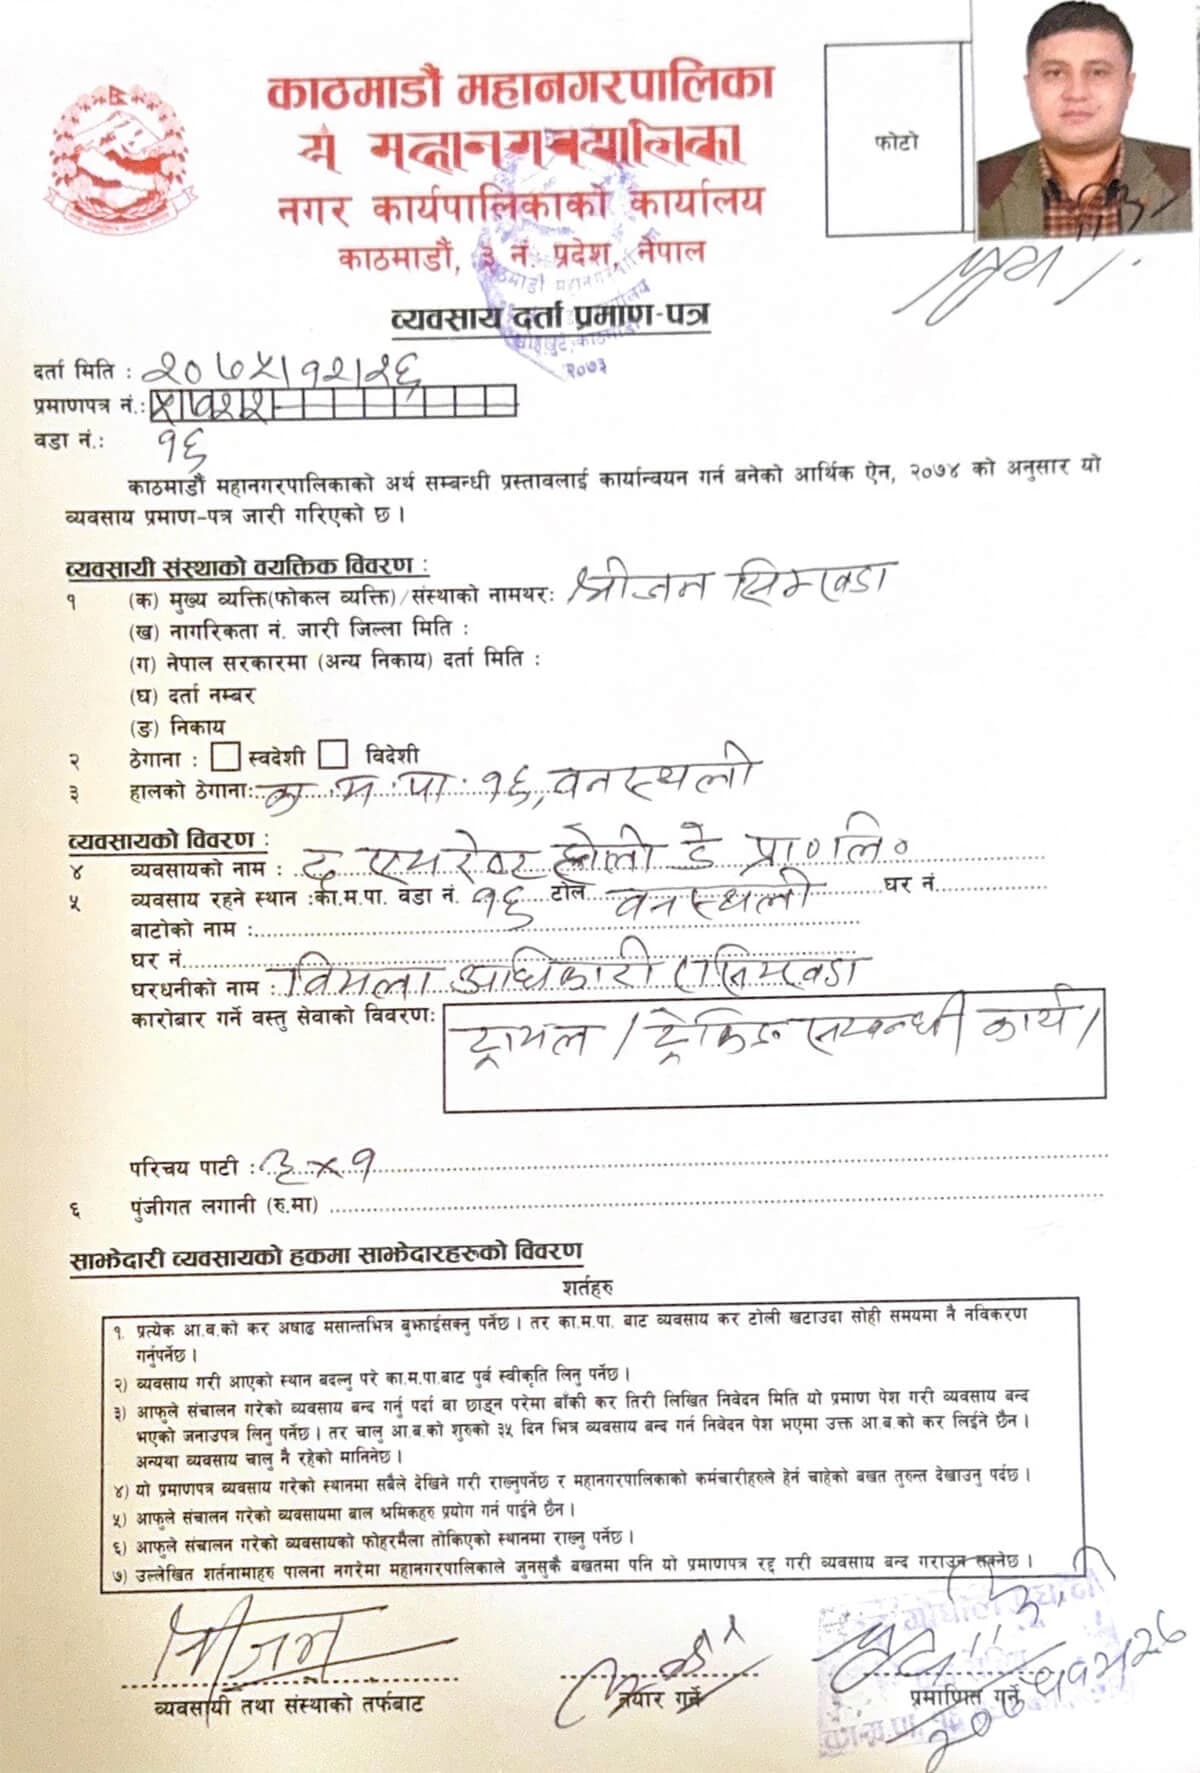 काठमाडौं महानगरपालिका
नगर कार्यपालिकाको कार्यालय
काठमाडौं, ३ नं. प्रदेश, नेपाल
फोटो
व्यवसाय दर्ता प्रमाण-पत्र
काठमाडौं महानगरपालिका
२०७३
दर्ता मिति : २०७५।१२।२६
प्रमाणपत्र नं.: ५७२२
वडा नं.: १६
काठमाडौं महानगरपालिकाको अर्थ सम्बन्धी प्रस्तावलाई कार्यान्वयन गर्न बनेको आर्थिक ऐन, २०७४ को अनुसार यो
व्यवसाय प्रमाण-पत्र जारी गरिएको छ ।
व्यवसायी संस्थाको वयक्तिक विवरण :
१ (क) मुख्य व्यक्ति(फोकल व्यक्ति)/संस्थाको नामथरः श्रीजन सिम्खडा
(ख) नागरिकता नं. जारी जिल्ला मिति :
(ग) नेपाल सरकारमा (अन्य निकाय) दर्ता मिति :
(घ) दर्ता नम्बर
(ङ) निकाय
२ ठेगाना : स्वदेशी विदेशी
३ हालको ठेगानाः का.म.पा. १६, वनस्थली
व्यवसायको विवरण :
४ व्यवसायको नाम : द एभरेष्ट होली डे प्रा०लि०
५ व्यवसाय रहने स्थान :का.म.पा. वडा नं. १६ टोल वनस्थली घर नं.
बाटोको नाम :
घर नं.
घरधनीको नाम : विमला अधिकारी सिम्खडा
कारोबार गर्ने वस्तु सेवाको विवरणः ट्राभल / ट्रेकिङ सम्बन्धी कार्य।
परिचय पाटी : ३×१
६ पुंजीगत लगानी (रु.मा)
साझेदारी व्यवसायको हकमा साझेदारहरुको विवरण
शर्तहरु
१. प्रत्येक आ.ब.को कर अषाढ मसान्तभित्र बुझाईसक्नु पर्नेछ । तर का.म.पा. बाट व्यवसाय कर टोली खटाउदा सोही समयमा नै नविकरण
गर्नुपर्नेछ ।
२) व्यवसाय गरी आएको स्थान बदल्नु परे का.म.पा.बाट पुर्व स्वीकृति लिनु पर्नेछ ।
३) आफुले संचालन गरेको व्यवसाय बन्द गर्नु पर्दा वा छाड्न परेमा बाँकी कर तिरी लिखित निवेदन मिति यो प्रमाण पेश गरी व्यवसाय बन्द
भएको जनाउपत्र लिनु पर्नेछ । तर चालु आ.ब.को शुरुको ३५ दिन भित्र व्यवसाय बन्द गर्न निवेदन पेश भएमा उक्त आ.ब.को कर लिईने छैन ।
अन्यथा व्यवसाय चालु नै रहेको मानिनेछ ।
४) यो प्रमाणपत्र व्यवसाय गरेको स्थानमा सबैले देखिने गरी राख्नुपर्नेछ र महानगरपालिकाको कर्मचारीहरुले हेर्न चाहेको बखत तुरुन्त देखाउनु पर्दछ ।
५) आफुले संचालन गरेको व्यवसायमा बाल श्रमिकहरु प्रयोग गर्न पाईने छैन ।
६) आफुले संचालन गरेको व्यवसायको फोहरमैला तोकिएको स्थानमा राख्नु पर्नेछ ।
७) उल्लेखित शर्तनामाहरु पालना नगरेमा महानगरपालिकाले जुनसुकै बखतमा पनि यो प्रमाणपत्र रद्द गरी व्यवसाय बन्द गराउन सक्नेछ ।
श्रीजन
व्यवसायी तथा संस्थाको तर्फबाट
तयार गर्ने
प्रमाणित गर्ने